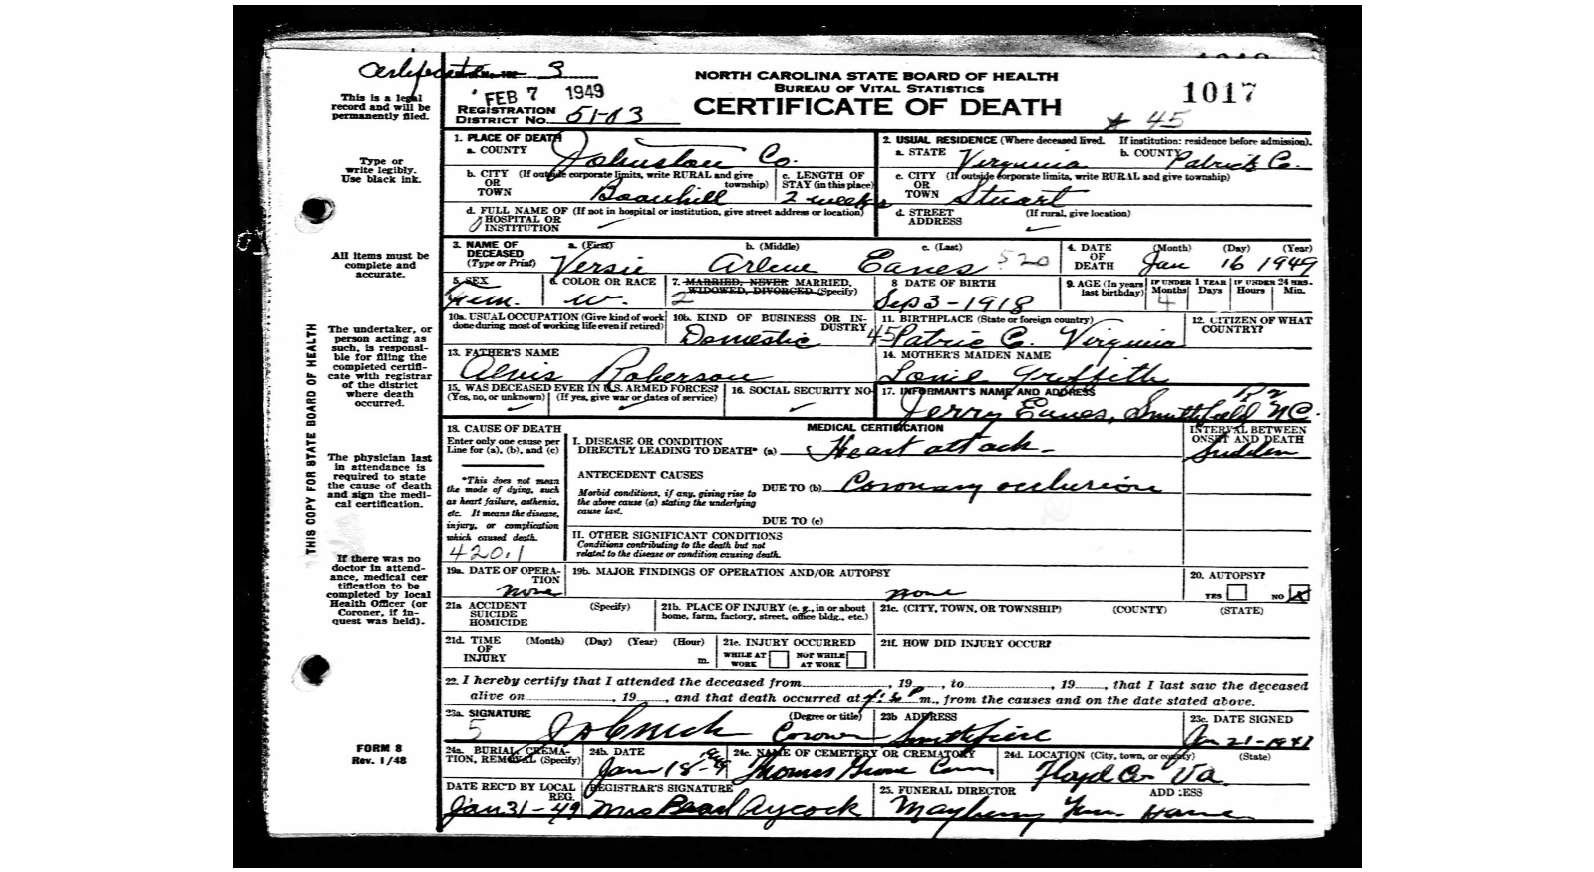 Certificate 3
FEB 7 1949
NORTH CAROLINA STATE BOARD OF HEALTH
BUREAU OF VITAL STATISTICS
CERTIFICATE OF DEATH
1017
45
REGISTRATION DISTRICT No. 51-03
This is a legal
record and will be
permanently filed.
Type or
write legibly.
Use black ink.
All items must be
complete and
accurate.
The undertaker, or
person acting as
such, is responsi-
ble for filing the
completed certifi-
cate with registrar
of the district
where death
occurred.
The physician last
in attendance is
required to state
the cause of death
and sign the medi-
cal certification.
If there was no
doctor in attend-
ance, medical cer
tification to be
completed by local
Health Officer (or
Coroner, if in-
quest was held).
FORM 8
Rev. 1/48
THIS COPY FOR STATE BOARD OF HEALTH
1. PLACE OF DEATH
a. COUNTY Johnston Co.
2. USUAL RESIDENCE (Where deceased lived. If institution: residence before admission).
a. STATE Virginia b. COUNTY Patrick Co.
b. CITY OR TOWN (If outside corporate limits, write RURAL and give township)
c. LENGTH OF STAY (in this place) 2 weeks
c. CITY OR TOWN (If outside corporate limits, write RURAL and give township) Stuart
d. FULL NAME OF HOSPITAL OR INSTITUTION (If not in hospital or institution, give street address or location)
d. STREET ADDRESS (If rural, give location)
3. NAME OF DECEASED (Type or Print)
a. (First) Versie b. (Middle) Arlene c. (Last) Eanes 520
4. DATE OF DEATH (Month) (Day) (Year) Jan 16 1949
5. SEX Fem.
6. COLOR OR RACE W.
7. MARRIED, NEVER MARRIED, WIDOWED, DIVORCED (Specify) 2
8 DATE OF BIRTH Sep 3-1918
9. AGE (In years last birthday) IF UNDER 1 YEAR Months Days IF UNDER 24 HRS. Hours Min. 4
10a. USUAL OCCUPATION (Give kind of work done during most of working life even if retired)
10b. KIND OF BUSINESS OR INDUSTRY Domestic
11. BIRTHPLACE (State or foreign country) 45 Patric C. Virginia
12. CITIZEN OF WHAT COUNTRY?
13. FATHER'S NAME Alvis Roberson
14. MOTHER'S MAIDEN NAME Lonie Griffith
15. WAS DECEASED EVER IN U.S. ARMED FORCES? (Yes, no, or unknown) (If yes, give war or dates of service)
16. SOCIAL SECURITY NO
17. INFORMANT'S NAME AND ADDRESS Jerry Eanes, Smithfield N.C. R2
18. CAUSE OF DEATH
Enter only one cause per
Line for (a), (b), and (c)
*This does not mean
the mode of dying, such
as heart failure, asthenia,
etc. It means the disease,
injury, or complication
which caused death.
420.1
MEDICAL CERTIFICATION
INTERVAL BETWEEN ONSET AND DEATH
I. DISEASE OR CONDITION DIRECTLY LEADING TO DEATH* (a) Heart attack Sudden
ANTECEDENT CAUSES
Morbid conditions, if any, giving rise to
the above cause (a) stating the underlying
cause last.
DUE TO (b) Coronary occlusion
DUE TO (c)
II. OTHER SIGNIFICANT CONDITIONS
Conditions contributing to the death but not
related to the disease or condition causing death.
19a. DATE OF OPERATION none
19b. MAJOR FINDINGS OF OPERATION AND/OR AUTOPSY none
20. AUTOPSY?
YES NO X
21a ACCIDENT SUICIDE HOMICIDE (Specify)
21b. PLACE OF INJURY (e. g., in or about home, farm, factory, street, office bldg., etc.)
21c. (CITY, TOWN, OR TOWNSHIP) (COUNTY) (STATE)
21d. TIME OF INJURY (Month) (Day) (Year) (Hour) m.
21e. INJURY OCCURRED
WHILE AT WORK NOT WHILE AT WORK
21f. HOW DID INJURY OCCUR?
22. I hereby certify that I attended the deceased from , 19 , to , 19 , that I last saw the deceased
alive on , 19 , and that death occurred at m., from the causes and on the date stated above.
23a. SIGNATURE (Degree or title) Coroner
5
23b ADDRESS Smithfield
23c. DATE SIGNED Jan 21-1947
24a. BURIAL, CREMATION, REMOVAL (Specify)
24b. DATE Jan 18-49
24c. NAME OF CEMETERY OR CREMATORY Thomas Grove Cem
24d. LOCATION (City, town, or county) (State) Floyd Co. Va
DATE REC'D BY LOCAL REG. Jan. 31-49
REGISTRAR'S SIGNATURE Mrs Pearl Aycock
25. FUNERAL DIRECTOR ADDRESS Mayberry Fun. Home